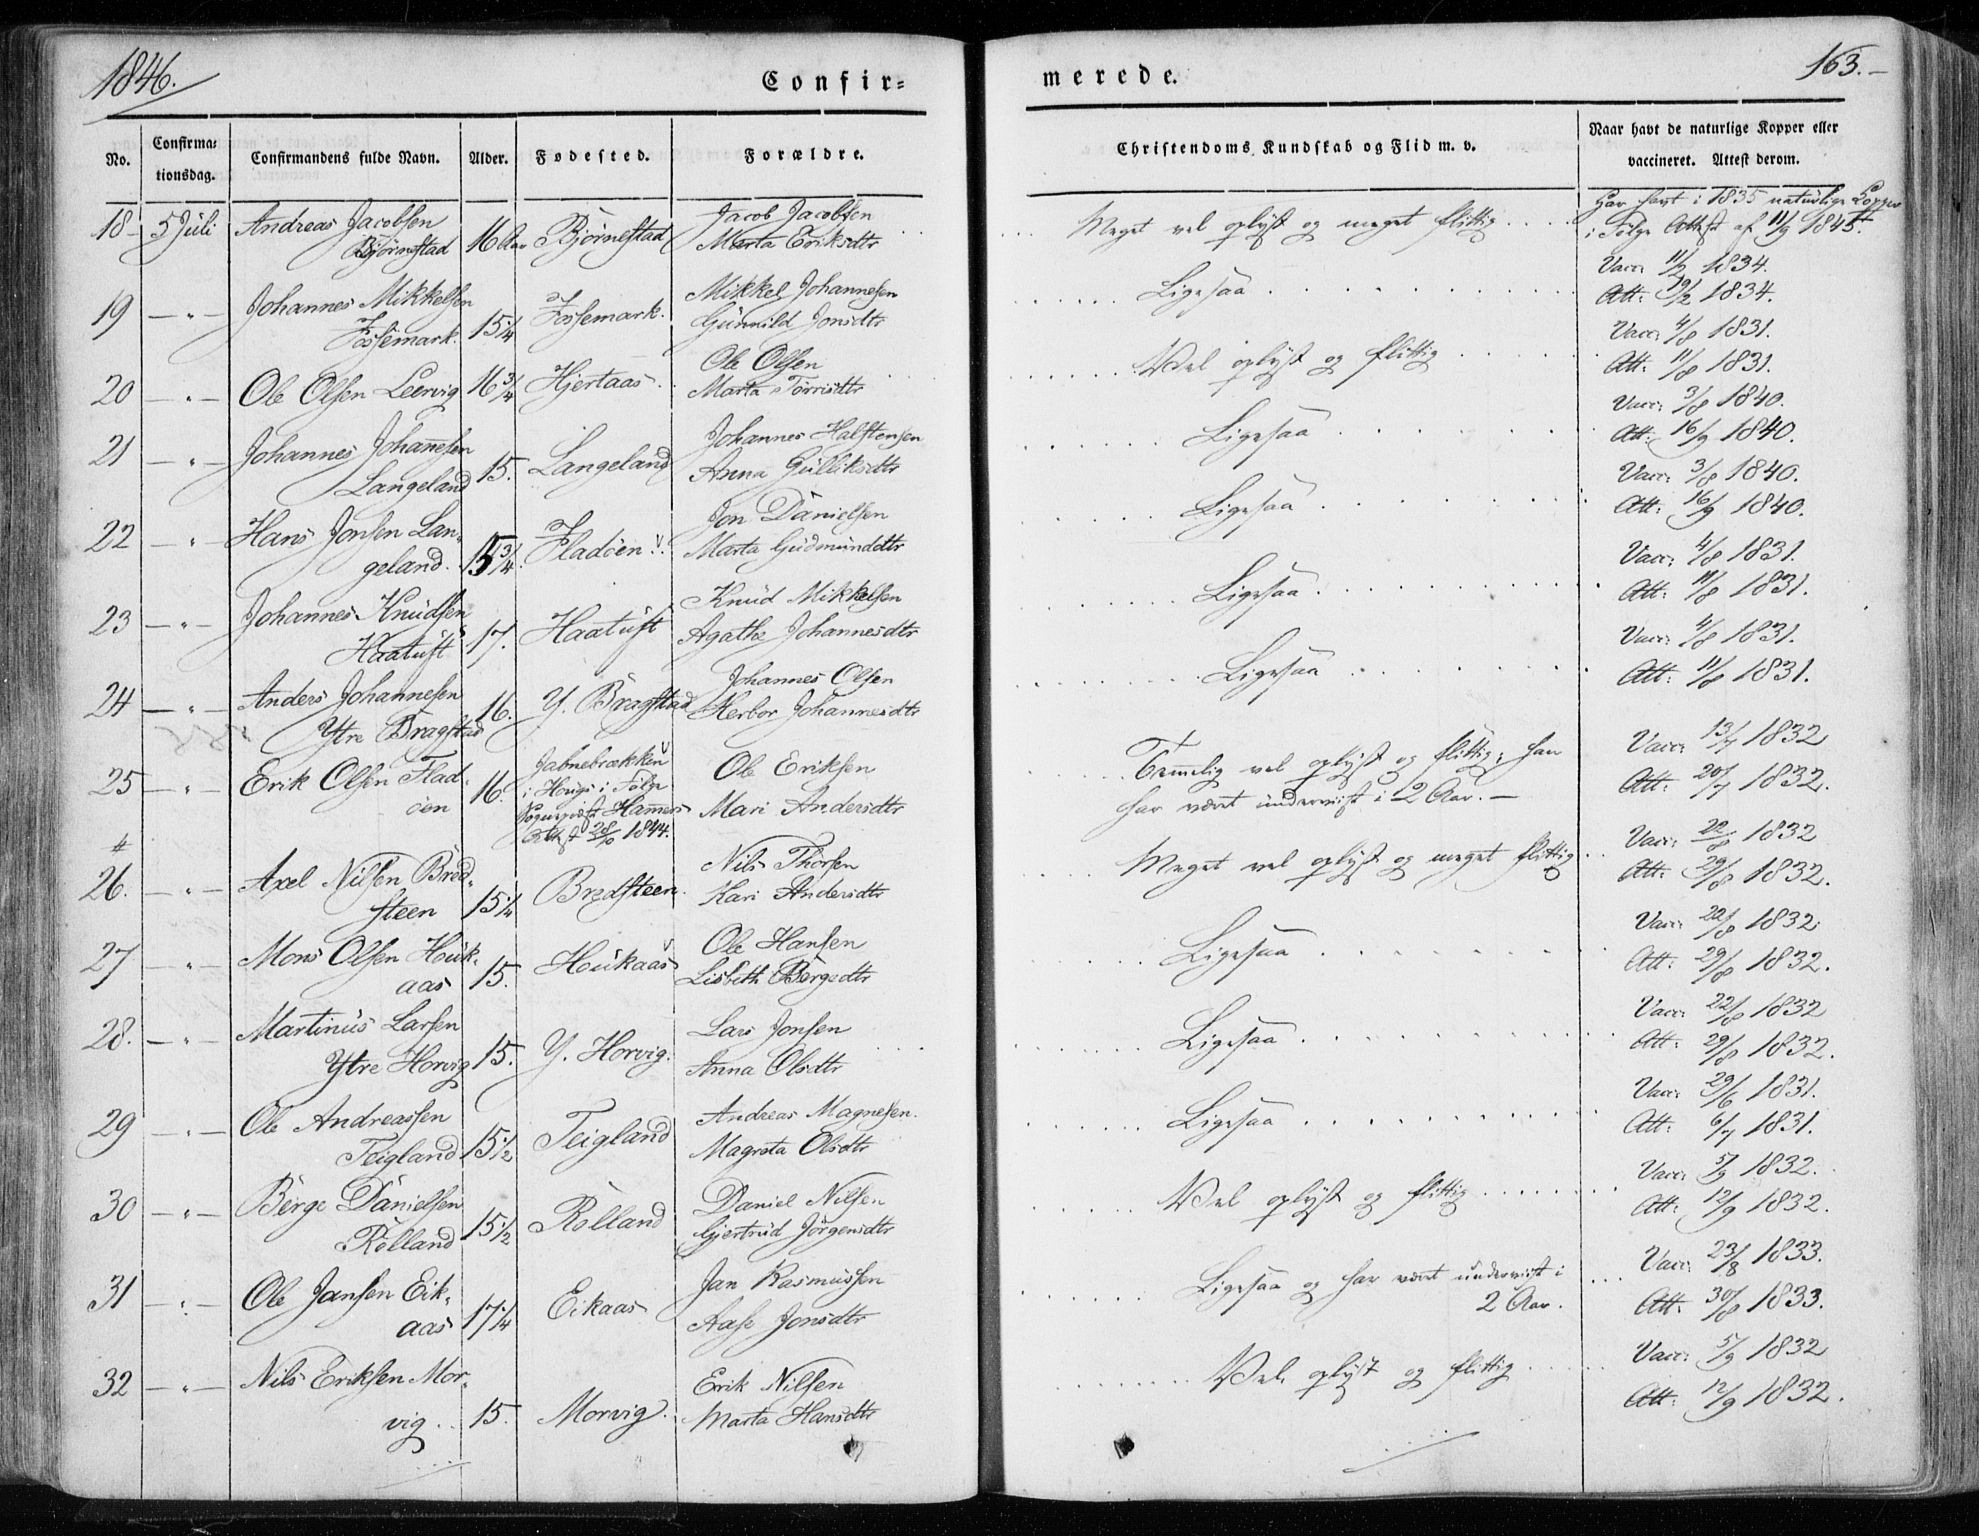 1846.
Confir=
merede.
163.-
No.
Confirma=
tionsdag.
Confirmandens fulde Navn.
Alder.
Fødested.
Forældre.
Christendoms Kundskab og Flid m. v.
Naar havt de naturlige Kopper eller
vaccineret. Attest derom.
18 - 5 Juli Andreas Jacobsen
Bjørnestad 16 Aar Bjørnestad Jacob Jacobsen
Marta Eriksdtr
Meget vel oplyst og meget flittig
Har havt i 1835 naturlige Kopper
i Følge Attest af 11/9 1845.
19 - " - Johannes Mikkelsen
Fossemark. 15 1/4 Fossemark. Mikkel Johannesen
Gunnild Jonsdtr
Ligesaa
Vacc: 11/2 1834.
Att: 19/2 1834.
20 - " - Ole Olsen Leervig 16 3/4 Hjertaas. Ole Olsen
Marta Torrisdtr
Vel oplyst og flittig
Vacc: 4/8 1831.
Att: 11/8 1831.
21 - " - Johannes Johannesen
Langeland 15. Langeland Johannes Halstensen
Anna Gulliksdtr
Ligesaa
Vacc: 3/8 1840.
Att: 16/9 1840.
22 - " - Hans Jonsen Lan-
geland. 15 3/4. Fladøen. Jon Danielsen
Marta Gudmunddtr
Ligesaa
Vacc: 3/8 1840.
Att: 16/9 1840.
23 - " - Johannes Knudsen
Haatuft 17. Haatuft Knud Mikkelsen
Agathe Johannesdtr
Ligesaa
Vacc: 4/8 1831.
Att: 11/8 1831.
24 - " - Anders Johannesen
Ytre Bragstad 16. Y. Bragstad Johannes Olsen
Herbor Johannesdtr
Ligesaa
Vacc: 4/8 1831.
Att: 11/8 1831.
25 - " - Erik Olsen Flad-
øen 16. Jabnebrækken
i Houg i Følge
Hammers
Attest 28/10 1844. Ole Eriksen
Mari Andersdtr
Temmelig vel oplyst og flittig; han
har været underviist i 2 Aar. -
Vacc: 13/7 1832
Att: 20/7 1832.
#
26. - " - Axel Nilsen Bred-
steen 15 1/4 Bredsteen. Nils Thorsen
Kari Andersdtr
Meget vel oplyst og meget flittig
Vacc: 22/8 1832
Att: 29/8 1832.
27 - " - Mons Olsen Houk-
aas 15. Houkaas Ole Hansen
Lisbeth Børgedtr
Ligesaa
Vacc: 22/8 1832.
Att: 29/8 1832.
28. - " - Martinus Larsen
Ytre Horvig 15. Y. Horvig. Lars Jonsen
Anna Olsdtr
Ligesaa
Vacc: 22/8 1832
Att: 29/8 1832.
29 - " - Ole Andreassen
Teigland 15 1/2 Teigland Andreas Magnesen.
Magreta Olsdtr
Ligesaa
Vacc: 29/6 1831.
Att: 6/7 1831.
30 - " - Børge Danielsen
Rolland 15 1/2 Rolland Daniel Nilsen
Gjertrud Jørgensdtr
Vel oplyst og flittig
Vacc: 5/9 1832.
Att: 12/9 1832.
31 - " - Ole Jansen Eik-
aas 17 1/4 Eikaas Jan Rasmussen
Aase Jonsdtr
Ligesaa og har været underviist i
2 Aar.
Vacc: 23/8 1833.
Att: 30/8 1833.
32 - " - Nils Eriksen Mor-
vig. 15. Morvig. Erik Nilsen
Marta Hansdtr
Vel oplyst og flittig
Vacc: 5/9 1832
Att: 12/9 1832.